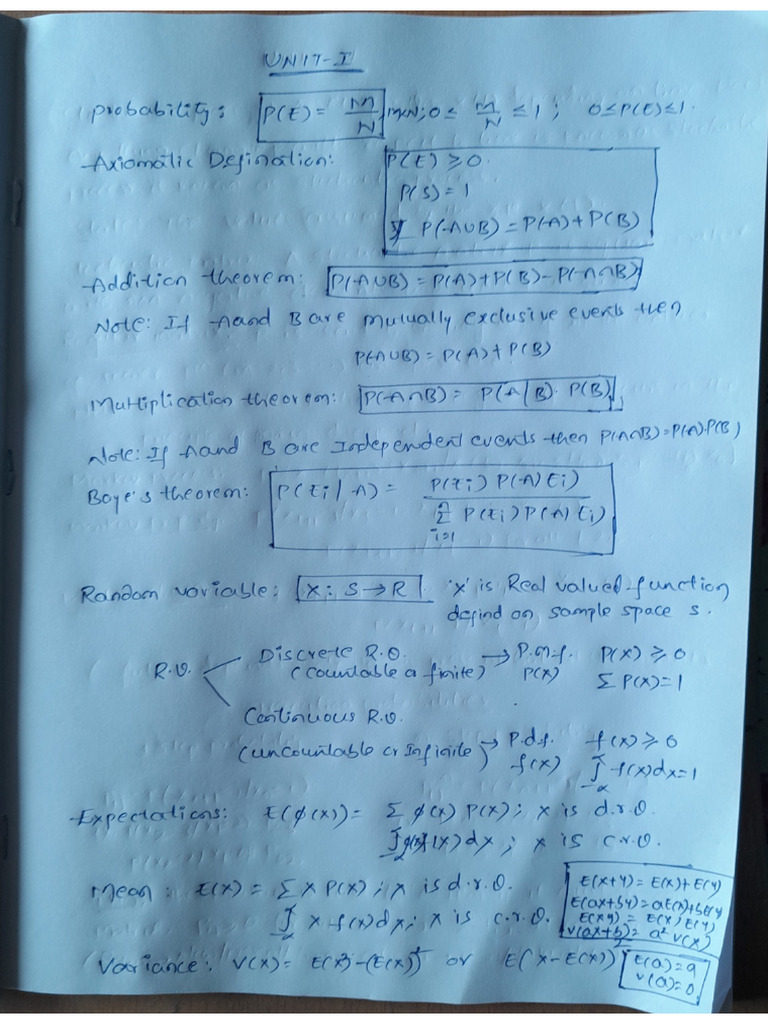 UNIT-I
Probability: P(E) = M/N, M<N; 0 ≤ M/N ≤ 1; 0≤P(E)≤1.
Axiomatic Defination: P(E) ≥ 0
P(S) = 1
P(A∪B) = P(A) + P(B)
Addition theorem: P(A∪B) = P(A)+P(B)-P(A∩B)
Note: If A and B are mutually exclusive events then
P(A∪B) = P(A) + P(B)
Multiplication theorem: P(A∩B) = P(A/B). P(B)
Note: If A and B are Independent events then P(A∩B)=P(A).P(B)
Baye's theorem: P(Ei/A) = P(Ei) P(A/Ei) / Σ_{i=1}^{n} P(Ei) P(A/Ei)
Random variable: X: S→R 'X' is Real valued function
defind on sample space s.
R.V. Discrete R.V. (Countable or finite) → P.m.f. P(x) P(x) ≥ 0 Σ P(x)=1
Continuous R.V. (uncountable or Infinite) → P.d.f. f(x) f(x) ≥ 0 ∫_{-∞}^{∞} f(x)dx=1
Expectations: E(ϕ(x)) = Σ ϕ(x) P(x); x is d.r.v.
∫_{-∞}^{∞} ϕ(x) f(x) dx; x is c.r.v.
Mean: E(x) = Σ x P(x); x is d.r.v.
∫_{-∞}^{∞} x f(x) dx; x is c.r.v.
E(x+y) = E(x)+E(y)
E(ax+by)=aE(x)+bE(y)
E(xy) = E(x) E(y)
V(ax+b) = a² V(x)
Variance: V(x) = E(x²)-(E(x))² or E(x-E(x))²
E(a)=a
V(a)=0